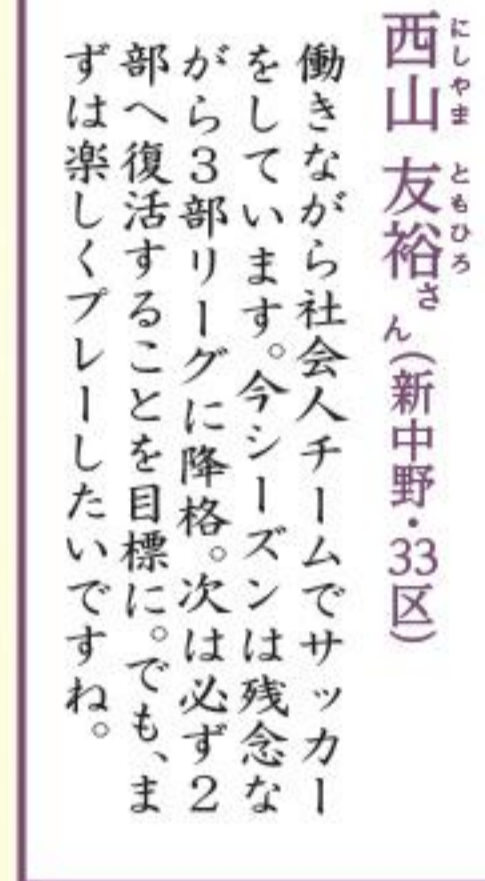 にしやま ともひろ
西山 友裕さん(新中野・33区)
働きながら社会人チームでサッカー
をしています。今シーズンは残念な
がら3部リーグに降格。次は必ず2
部へ復活することを目標に。でも、ま
ずは楽しくプレーしたいですね。